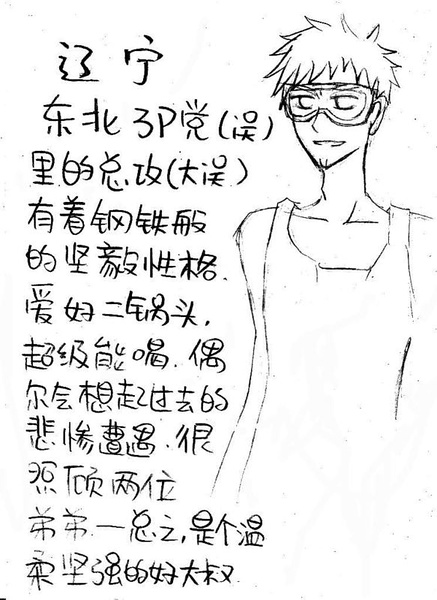 辽宁
东北3P党(误)
里的总攻(大误)
有着钢铁般
的坚毅性格.
爱好二锅头,
超级能喝.偶
尔会想起过去的
悲惨遭遇.很
照顾两位
弟弟.一总之,是个温
柔坚强的好大叔.